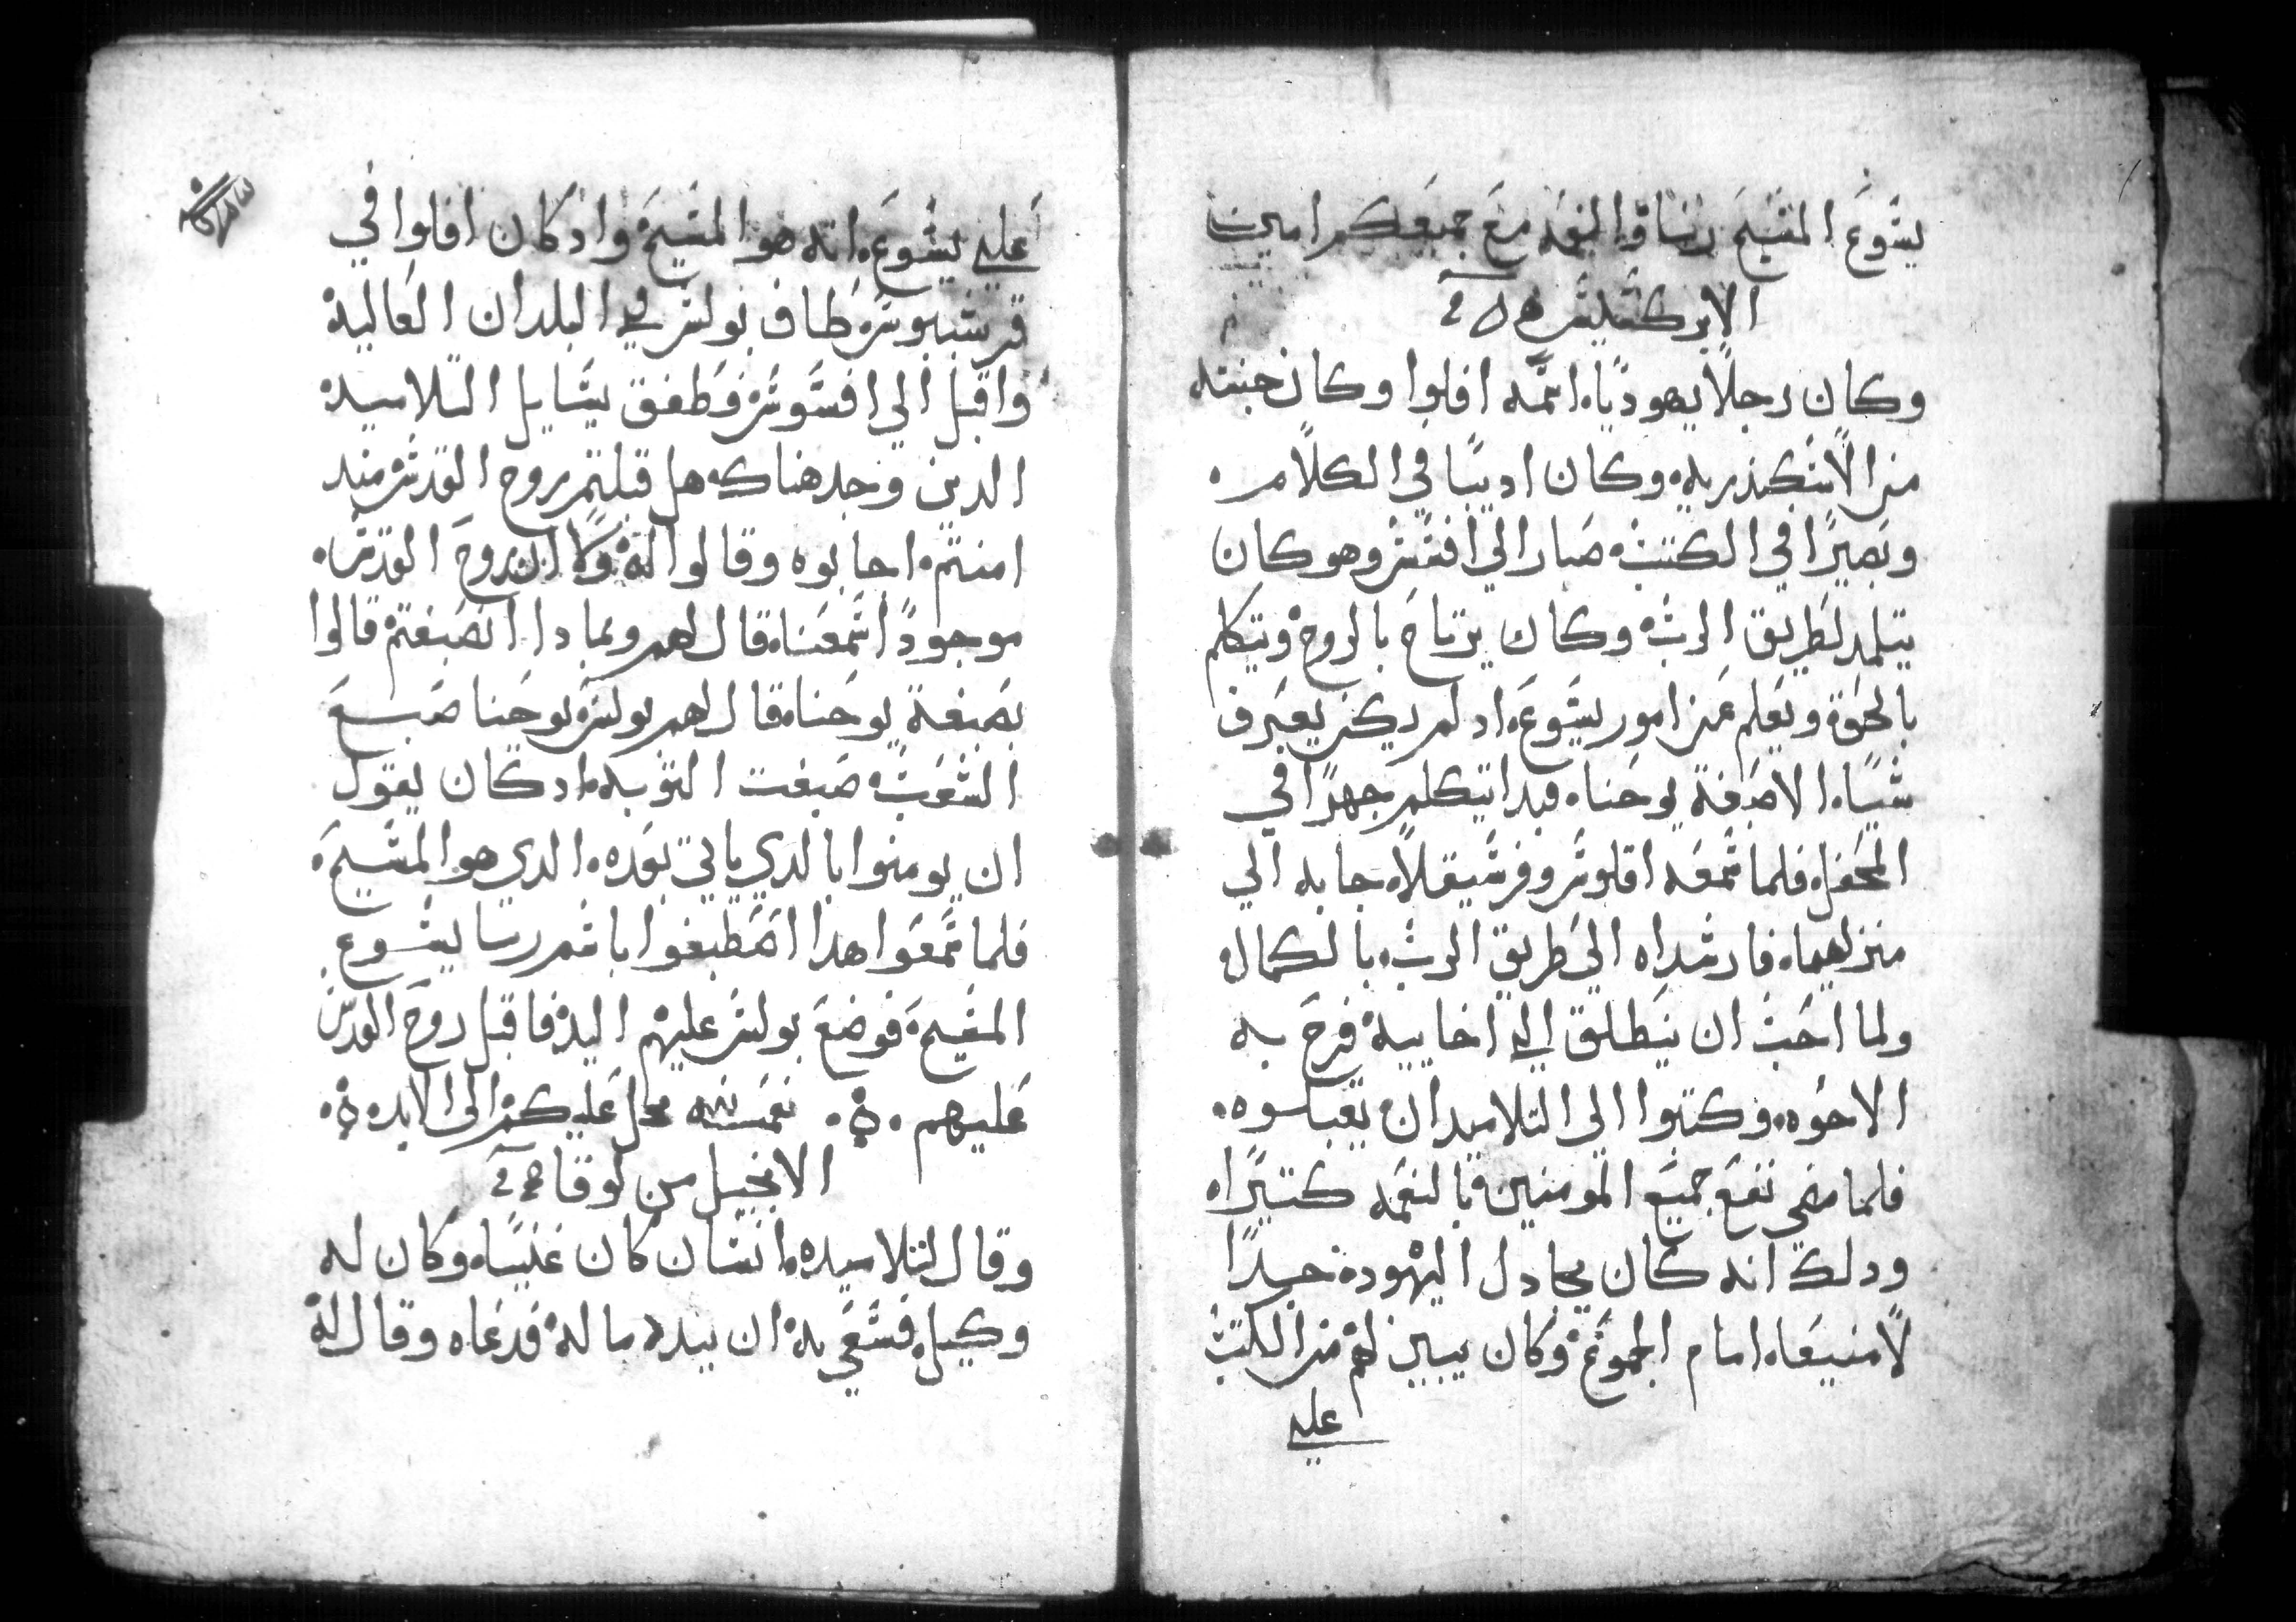 يشوع المسيح ربنا والنعمه مع جميعكم امين
الابركسيس
وكان رجلاً يهوديًا اسمه افلوا وكان جنسه
من الاسكندريه وكان اديبًا في الكلام
وبصيرًا في الكتب صار الي افسس وهو كان
يتلمد لطريق الرب وكان يرتاح بالروح ويتكلم
بالحق ويعلم عن امور يشوع اد لم يكن يعرف
شيا الا صبغة يوحنا فبدا يتكلم جهرًا في
المحفل فلما سمعه اقلوس وفرسيقلا جابه الي
منزلهما فارشداه الي طريق الرب بالكمال
ولما احب ان ينطلق الي اخاييه فرح به
الاخوه وكتبوا الي التلاميد ان يقبلوه
فلما مضي نفع جميع المومنين بالنعمه كتيرًا
ودلك انه كان يجادل اليهود جدلاً
لا منيعا امام الجموع وكان يبين لهم من الكتب
علي
علي يشوع انه هو المسيح واد كان افلوا في
قرنتيوس طاف بولس في البلدان العاليه
واقبل الي افسوس فطفق يسايل التلاميد
الدين وجد هناك هل قبلتم روح القدس مند
امنتم اجابوه وقالوا له ولا ان روح القدس
موجودًا سمعنا قال لهم وبمادا انصبغتم قالوا
بصبغة يوحنا قال لهم بولس يوحنا صبغ
الشعب صبغت التوبه اد كان يقول
ان يومنوا بالدي ياتي بعده الدي هو المسيح
فلما سمعوا هدا اصطبغوا باسم ربنا يشوع
المسيح فوضع بولس عليهم اليد فاقبل روح القدس
عليهم نعمته تحل عليكم الي الابد
الانجيل من لوقا
وقال لتلاميده انسان كان غنيا وكان له
وكيل فسعي به ان يبدد ماله فدعاه وقال له